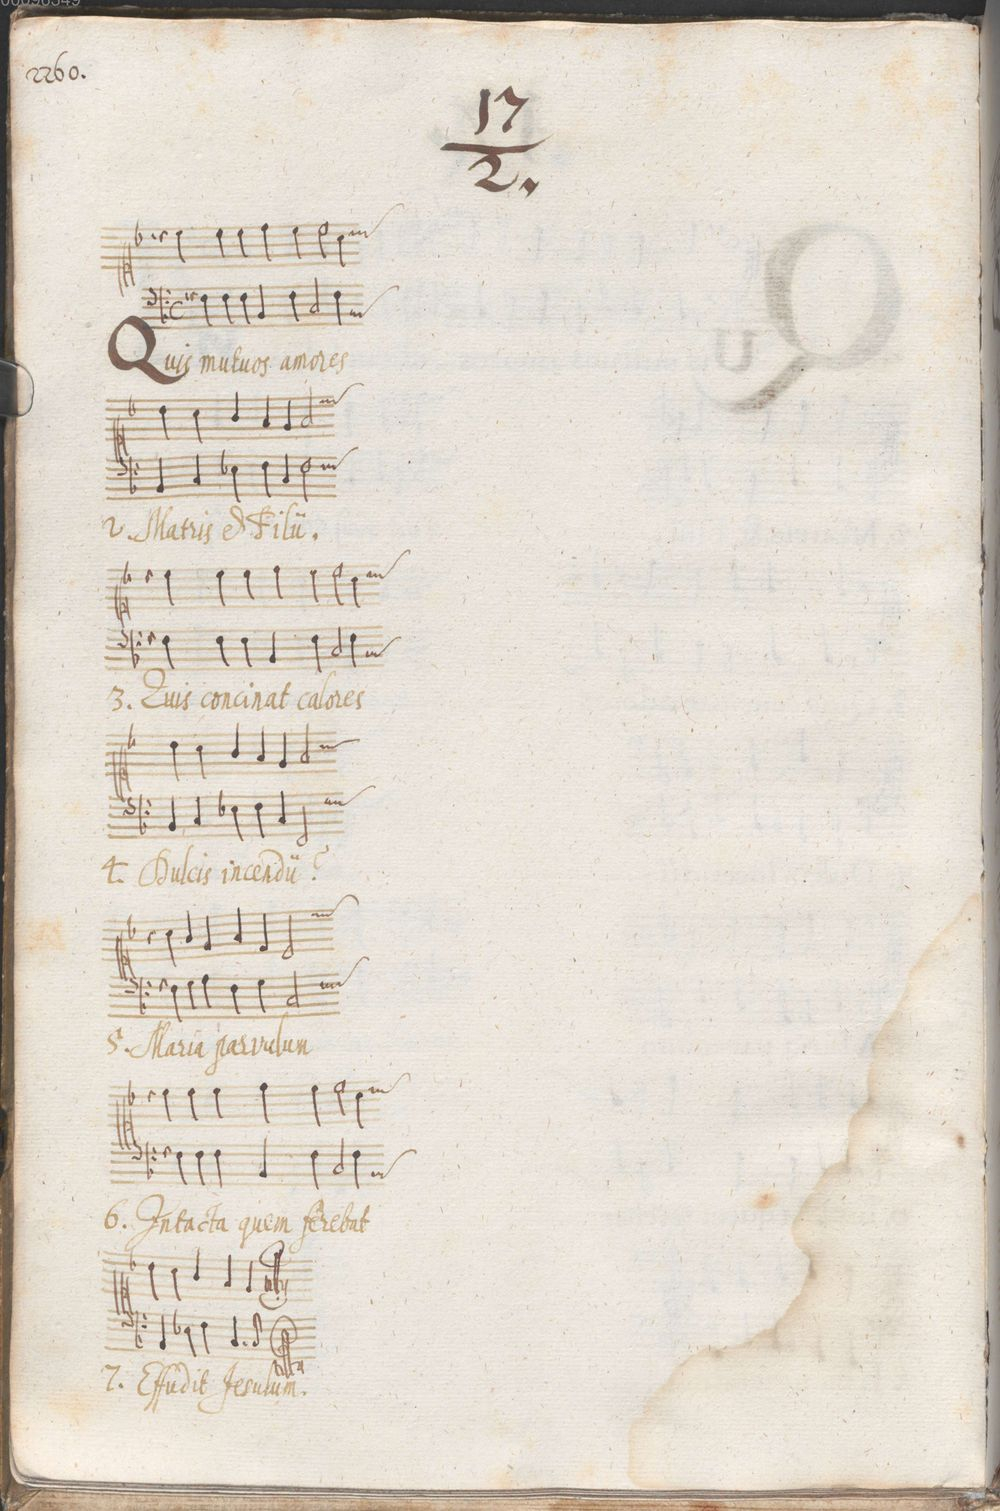 00098549
2260.
17
2.
Quis mutuos amores
2. Matris & Filii.
3. Quis concinat calores
4. Dulcis incendii?
5. Maria parvulum
6. Intacta quem ferebat
7. Effudit Jesulum.